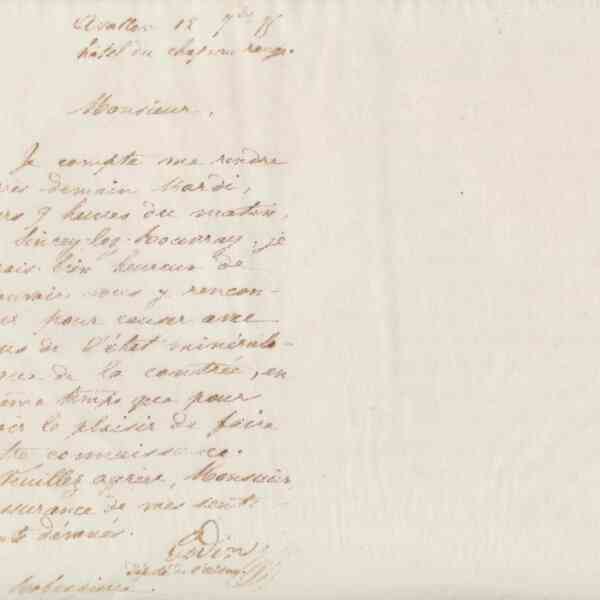 Avallon 12 7bre
hôtel du chapeau rouge.
Monsieur,
Je compte me rendre
res demain Mardi,
rs 9 heures du matin,
Sincey-les-Rouvray, je
rais bien heureux de
ouvoir vous y rencon-
er pour causer avec
us de l'état minéralo-
que de la contrée, en
ême temps que pour
oir le plaisir de faire
tre connaissance.
Veuillez agréer, Monsieur,
ssurance de mes senti-
nts dévoués.